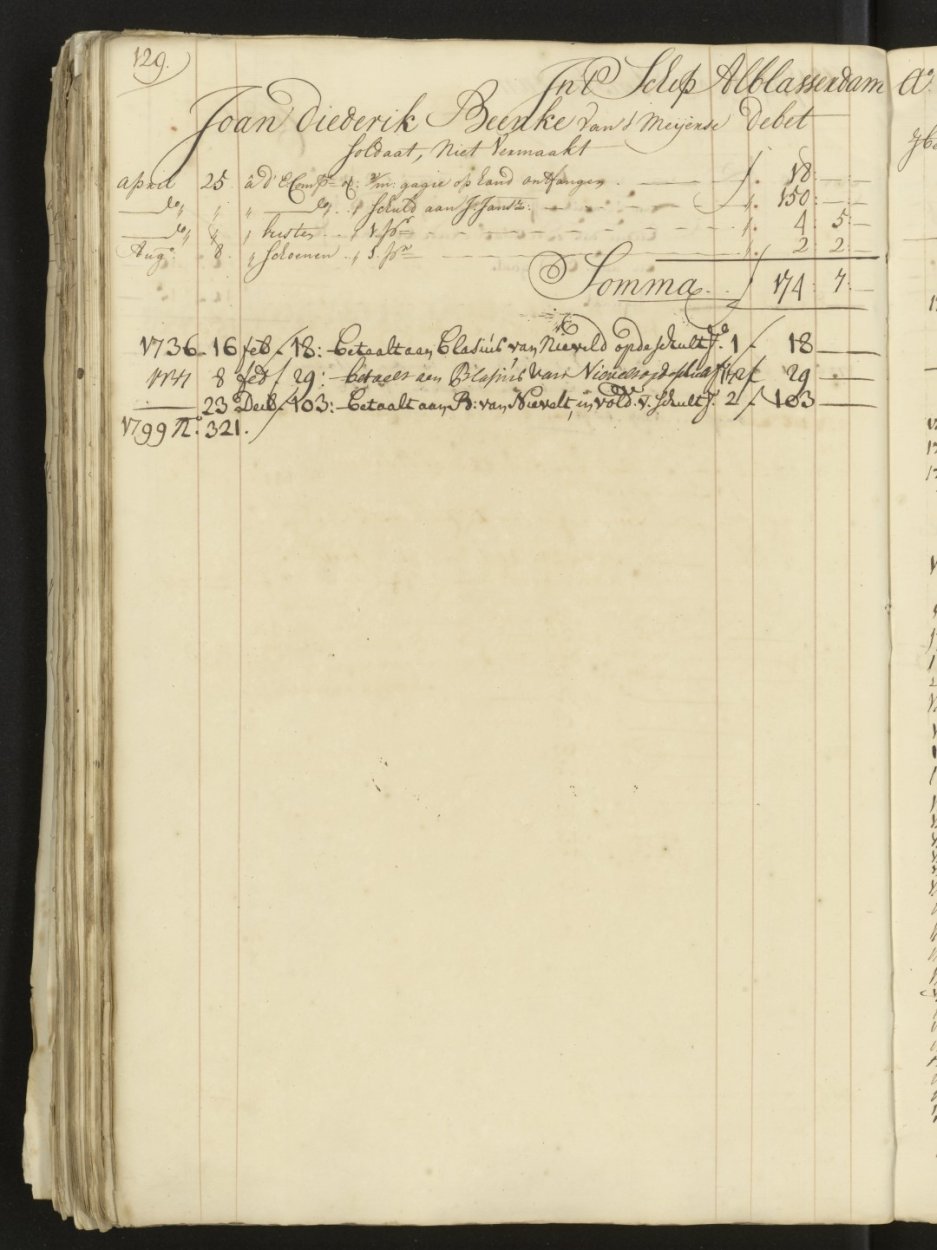 129.
In't Schip Alblasserdam Aº
Joan Diederik Beenke van Meijense Debet
Soldaat, Niet Vermaakt
april 25 â d' E Comp: 2/m: gagie op hand ontfangen . 18 : — : —
— dº „ „ „ — dº „ schuld aan 150 : — : —
— dº „ „ „ kister „ 1 ps 4 : 5 : —
Augº 8 „ schoenen „ 1 pr 2 : 2 : —
Somma 174 : 7 : —
1736 - 16 feb / 18 : - betaalt aan Blasius van Nieveld op de schult f. 1 / 18 —
8 feb / 29 : - betaelt aen Blasius van 29 —
— 23 Decb / 103 : - betaalt aan B: van Nievelt, in vold. v. schult f. 2 / 103 —
1799 Nº. 321.